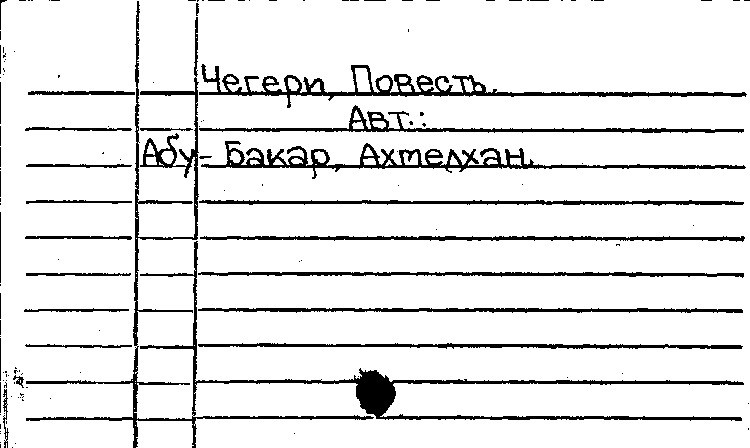 Чегери, Повесть.
Авт.:
Абу - Бакар, Ахмелхан.